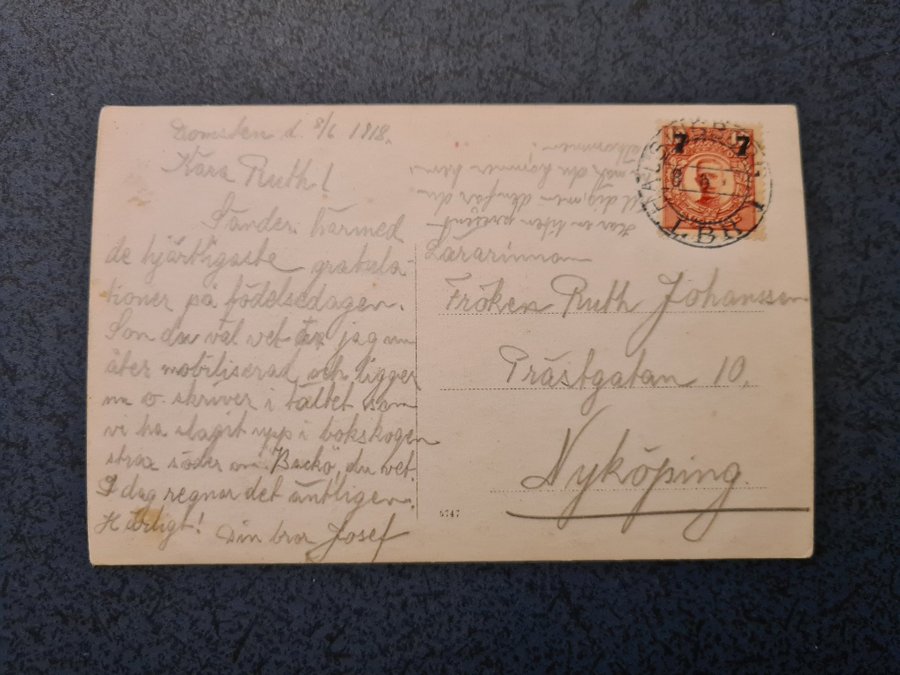 Domsten d. 8/6 1918.
Kära Ruth!
Sänder härmed
de hjärtligaste gratula-
tioner på födelsedagen.
Som du väl vet är jag nu
åter mobiliserad och ligger
nu o. skriver i tältet som
vi ha slagit upp i bokskogen
strax söder om Backö, du vet.
I dag regnar det äntligen.
Härligt! Din bror Josef
Har en liten present
till dig, men den får du
när du kommer hem
Lärarinnan
Fröken Ruth Johansson
Prästgatan 10.
Nyköping.
5747
7 7
LBR